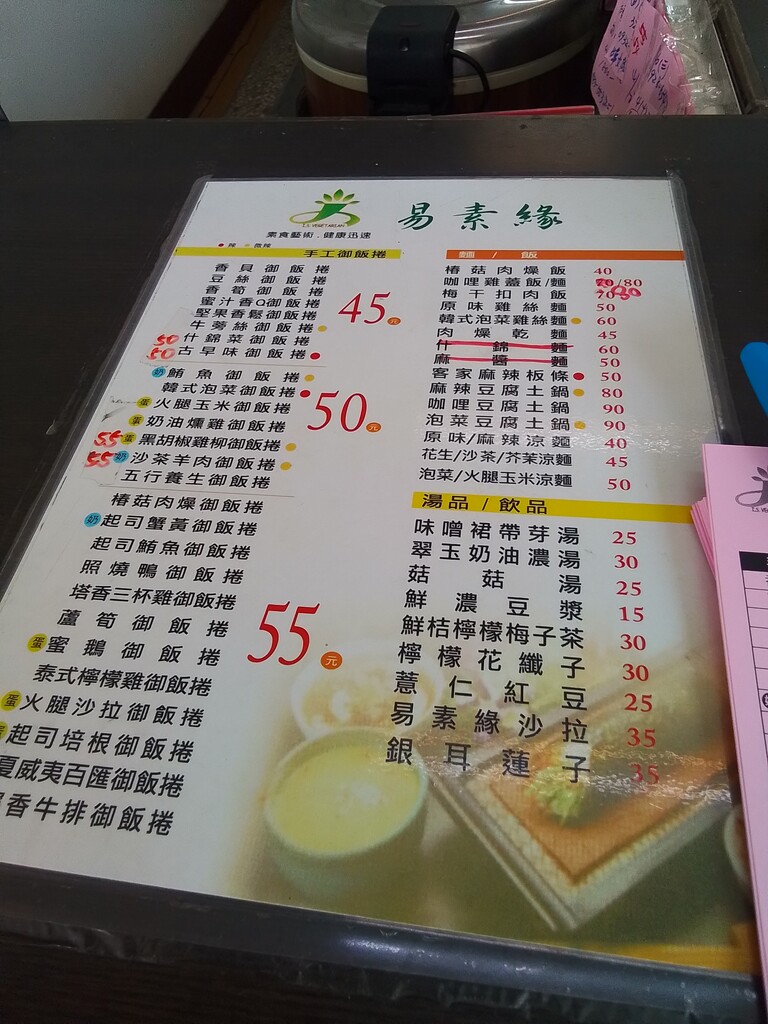 易素緣
I.S. VEGETARIAN
素食藝術．健康迅速
辣 微辣
手工御飯捲
香貝御飯捲
豆絲御飯捲
香筍御飯捲
蜜汁香Q御飯捲
堅果香鬆御飯捲
牛蒡絲御飯捲
45元
50 什錦菜御飯捲
50 古早味御飯捲
奶 鮪魚御飯捲
韓式泡菜御飯捲
蛋 火腿玉米御飯捲
蛋 奶油燻雞御飯捲
50元
55 蛋 黑胡椒雞柳御飯捲
55 奶 沙茶羊肉御飯捲
五行養生御飯捲
椿菇肉燥御飯捲
奶 起司蟹黃御飯捲
起司鮪魚御飯捲
照燒鴨御飯捲
塔香三杯雞御飯捲
蘆筍御飯捲
55元
蛋 蜜鵝御飯捲
泰式檸檬雞御飯捲
蛋 火腿沙拉御飯捲
起司培根御飯捲
夏威夷百匯御飯捲
香牛排御飯捲
麵 / 飯
椿菇肉燥飯 40
咖哩雞蓋飯/麵 /80
梅干扣肉飯 80
原味雞絲麵 50
韓式泡菜雞絲麵 60
肉燥乾麵 45
什錦麵 60
麻醬麵 50
客家麻辣板條 50
麻辣豆腐土鍋 80
咖哩豆腐土鍋 90
泡菜豆腐土鍋 90
原味/麻辣涼麵 40
花生/沙茶/芥茉涼麵 45
泡菜/火腿玉米涼麵 50
湯品 / 飲品
味噌裙帶芽湯 25
翠玉奶油濃湯 30
菇菇湯 25
鮮濃豆漿 15
鮮桔檸檬梅子茶 30
檸檬花纖子 30
薏仁紅豆 25
易素緣沙拉 35
銀耳蓮子 35